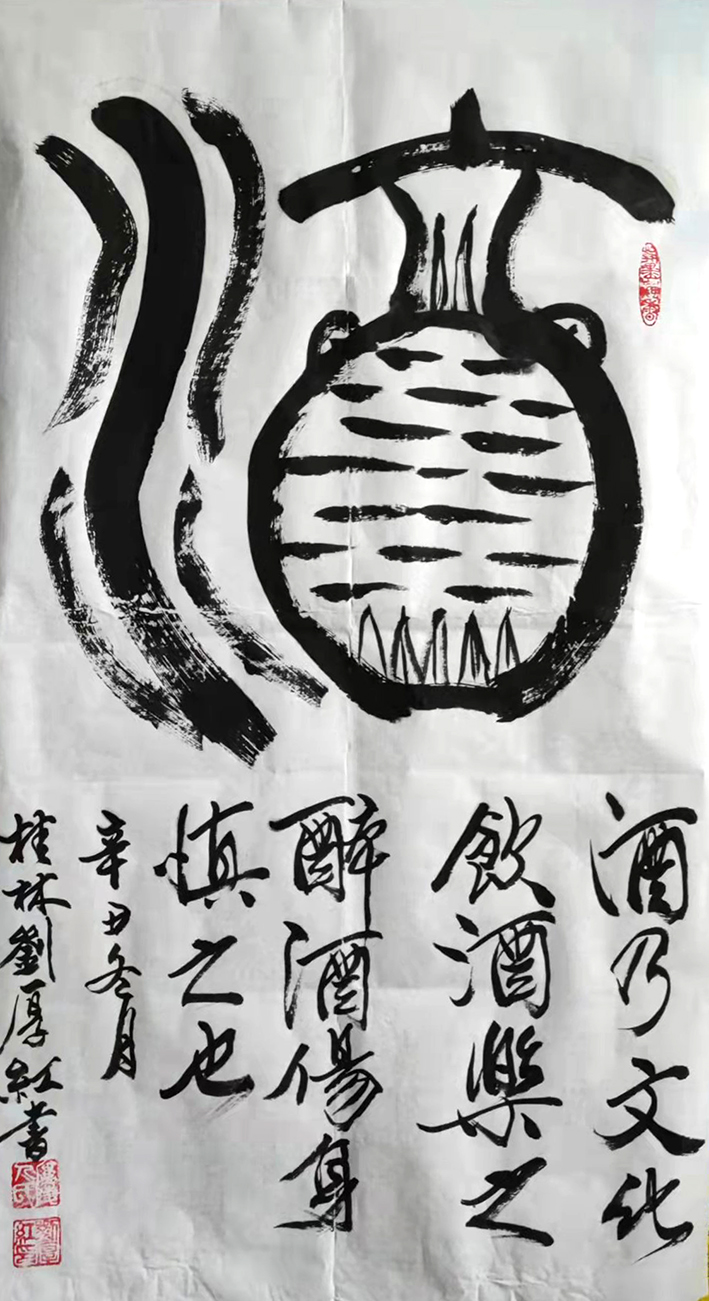 酒
酒乃文化
飲酒樂之
醉酒傷身
慎之也
辛丑冬月
桂林劉厚紅書